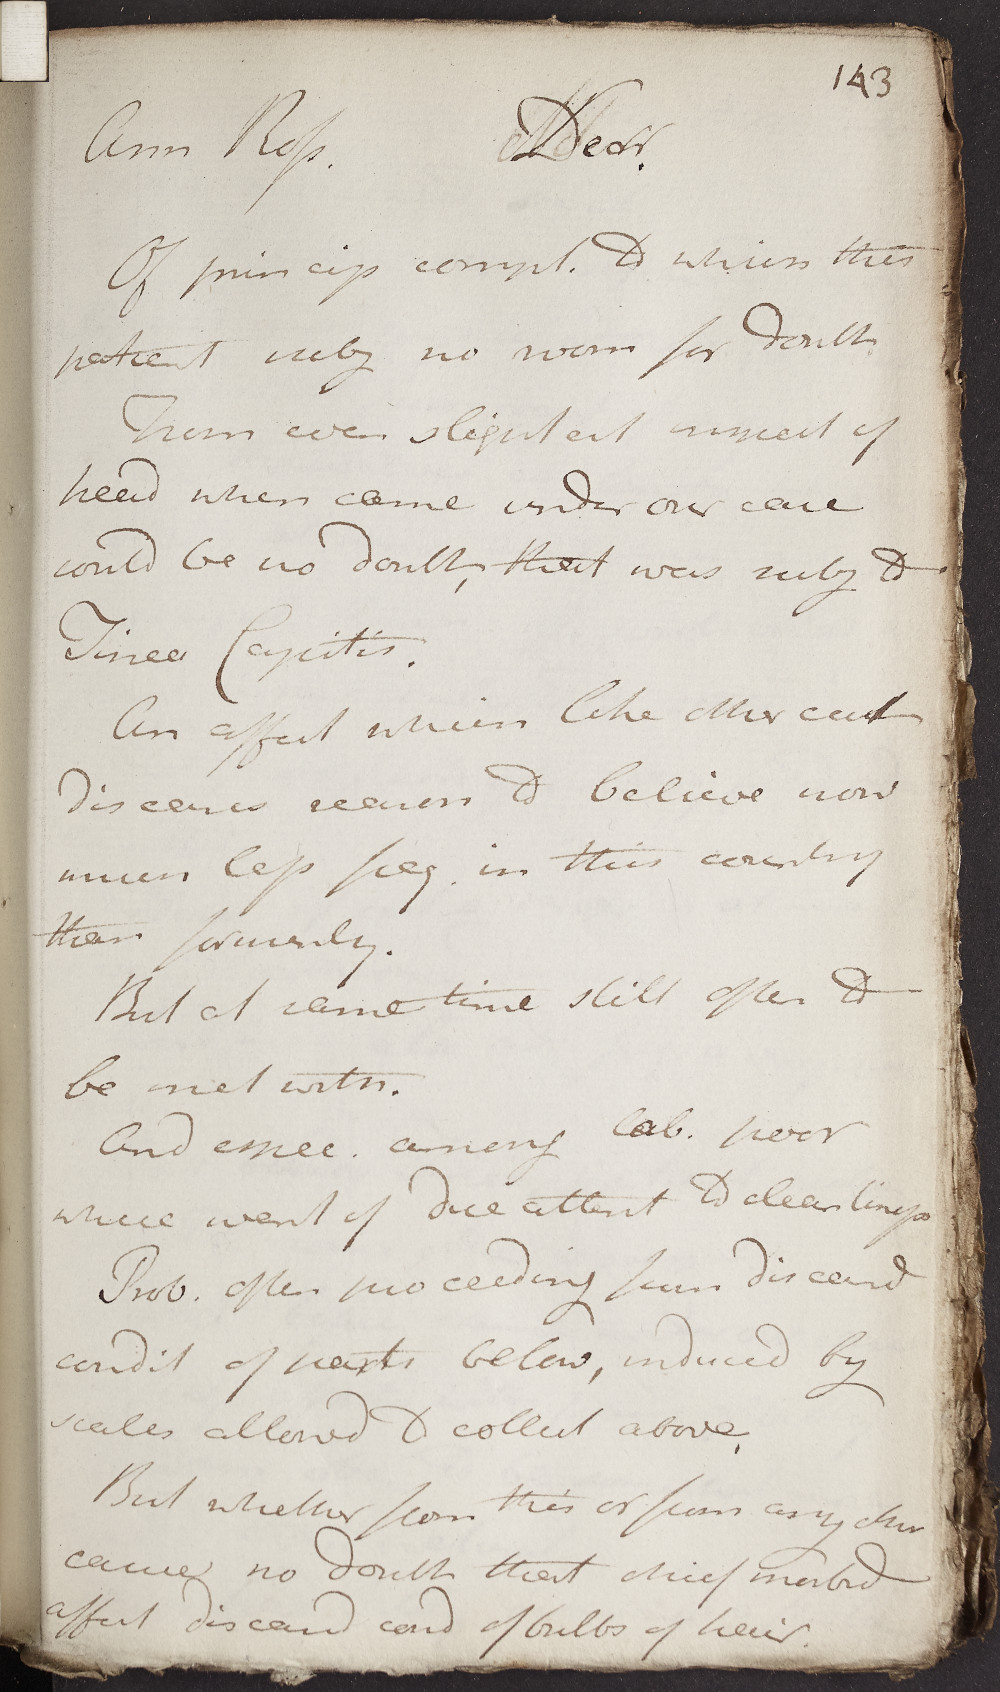 143
Ann Ross. Dear.
Of princip compl. to which this
patient subj no room for doubt
From even slightest inspect of
head when came under our care
could be no doubt, that was subj to
Tinea Capitis.
An affect which like other cut
diseases reason to believe now
much less freq. in this country
than formerly.
But at same time still often to
be met with.
And espec. among lab. poor
where want of due attent to cleanliness
Prob. often proceeding from diseased
condit of parts below, induced by
scales allowed to collect above,
But whether from this or from any other
cause, no doubt that chief morbid
affect diseased cond of bulbs of hair.